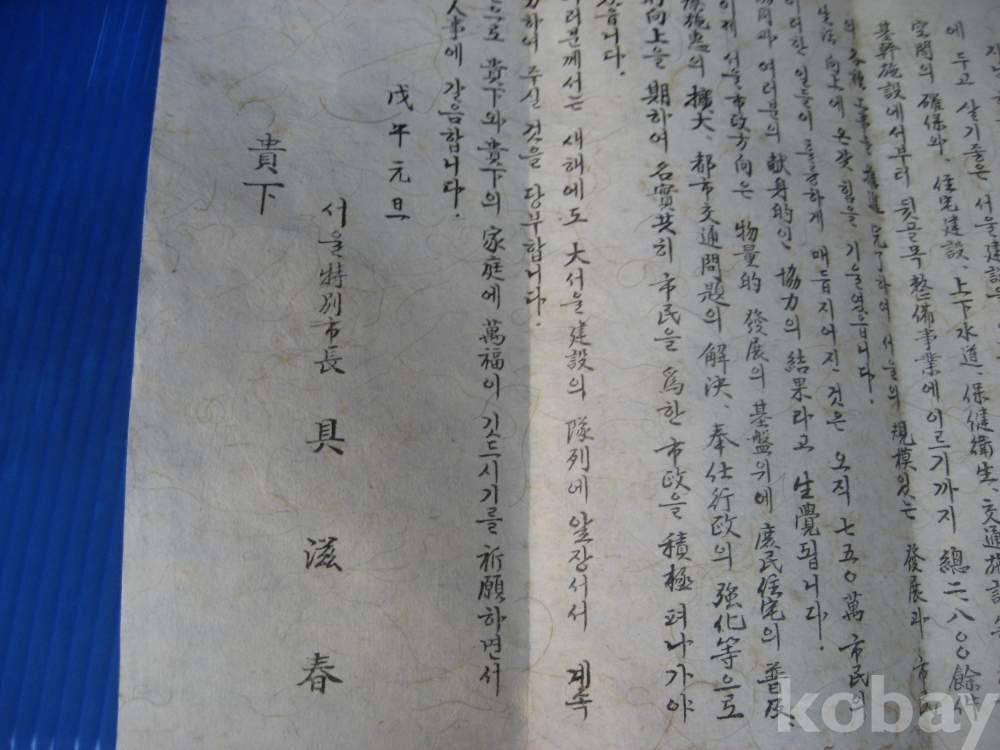 에 두고 살기좋은 서울建設을
空間의 確保와, 住宅建設, 上下水道, 保健衛生, 交通施設
基幹施設에서부터 뒷골목 整備事業에 이르기까지 總 二八〇〇餘
完了하여 서울의 規模있는 發展과 市民
生活 向上에 온갖 힘을 기울였읍니다.
이러한 일들이 훌륭하게 매듭지어진 것은 오직 七五〇萬 市民의
協同과 여러분의 献身的인 協力의 結果라고 生覺됩니다.
이제 서울市政方向은 物量的 發展의 基盤위에 庶民住宅의 普及,
施惠의 擴大, 都市交通問題의 解決, 奉仕行政의 強化等으로
向上을 期하여 名實共히 市民을 爲한 市政을 積極 펴나가야
읍니다.
여러분께서는 새해에도 大서울建設의 隊列에 앞장서서 계속
하여 주실 것을 당부합니다.
으로 貴下와 貴下의 家庭에 萬福이 깃드시기를 祈願하면서
人事에 갈음합니다.
戊午元旦
서울特別市長 具滋春
貴下
kobay